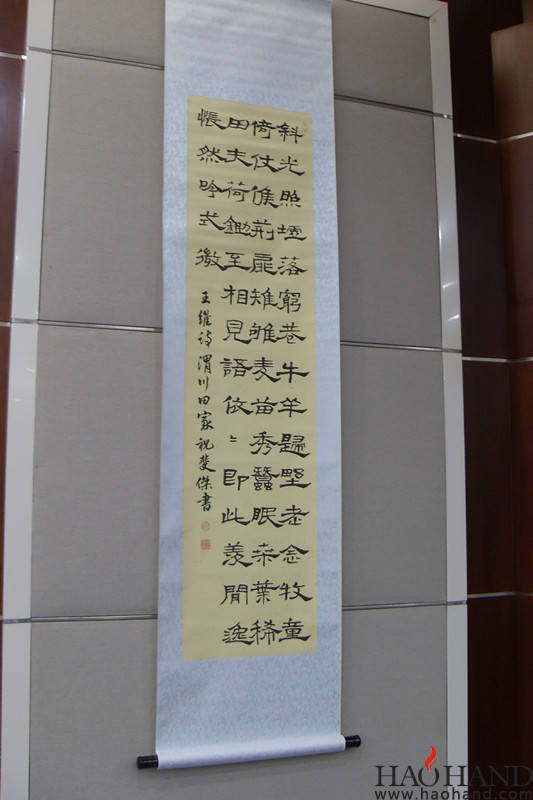 斜光照墟落窮巷牛羊歸野老念牧童
倚仗候荊扉雉雊麦苗秀蠶眠桒葉稀
田夫荷鋤至相見語依〻即此羨閒逸
悵然吟式微
王維诗渭川田家祝斐傑書
HAOHAND
www.haohand.com